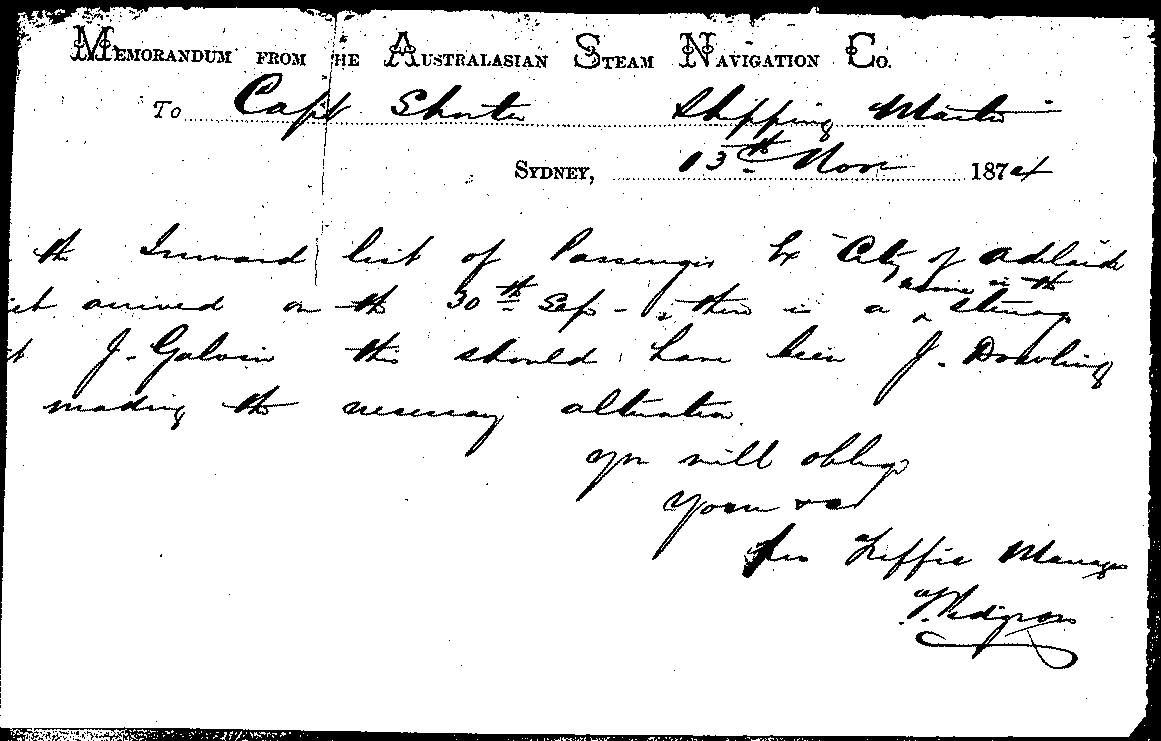 MEMORANDUM FROM THE AUSTRALASIAN STEAM NAVIGATION CO.
To Capt Shorter Shipping Master
SYDNEY, 13th Novr 1874
the Inward list of Passengers Ex "City of Adelaide
arrived on the 30th Sep - there is a steerage
name in the
J. Galvin this should have been J. Dowling
making the necessary alteration
you will oblige
Yours &c
per Traffic Manager